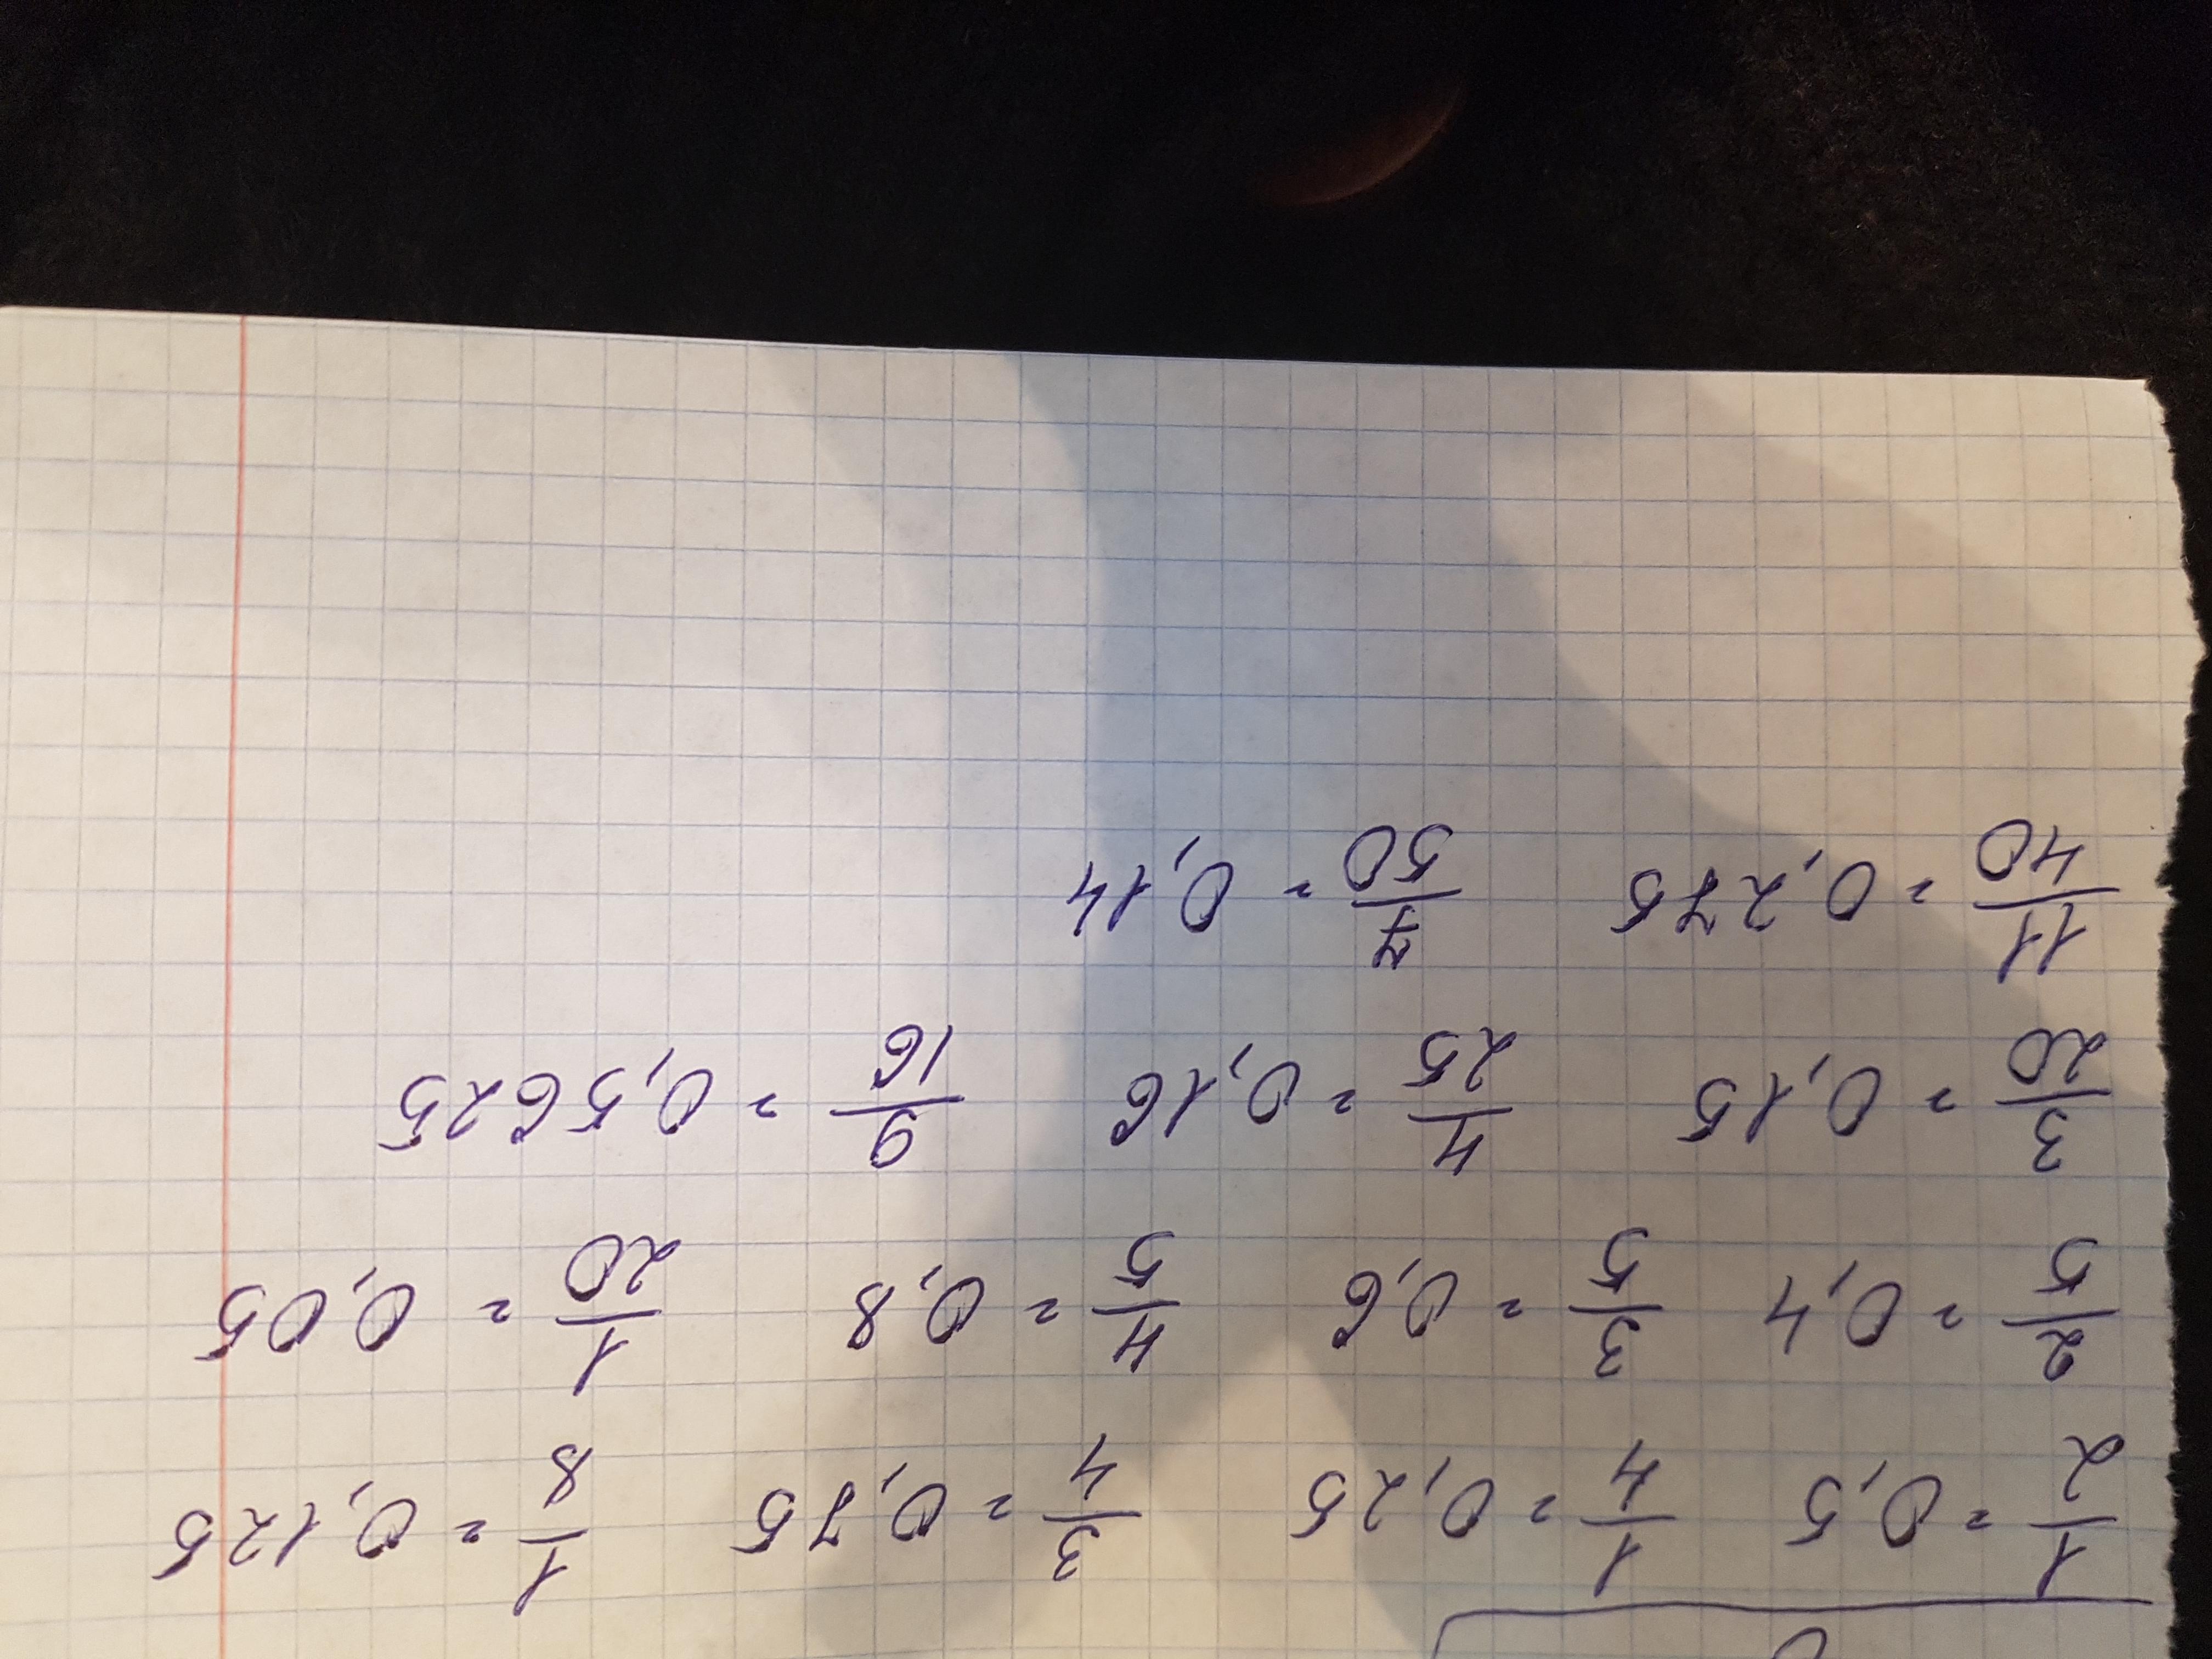 1/2 = 0,5 1/4 = 0,25 3/4 = 0,75 1/8 = 0,125
2/5 = 0,4 3/5 = 0,6 4/5 = 0,8 1/20 = 0,05
3/20 = 0,15 4/25 = 0,16 9/16 = 0,5625
11/40 = 0,275 7/50 = 0,14